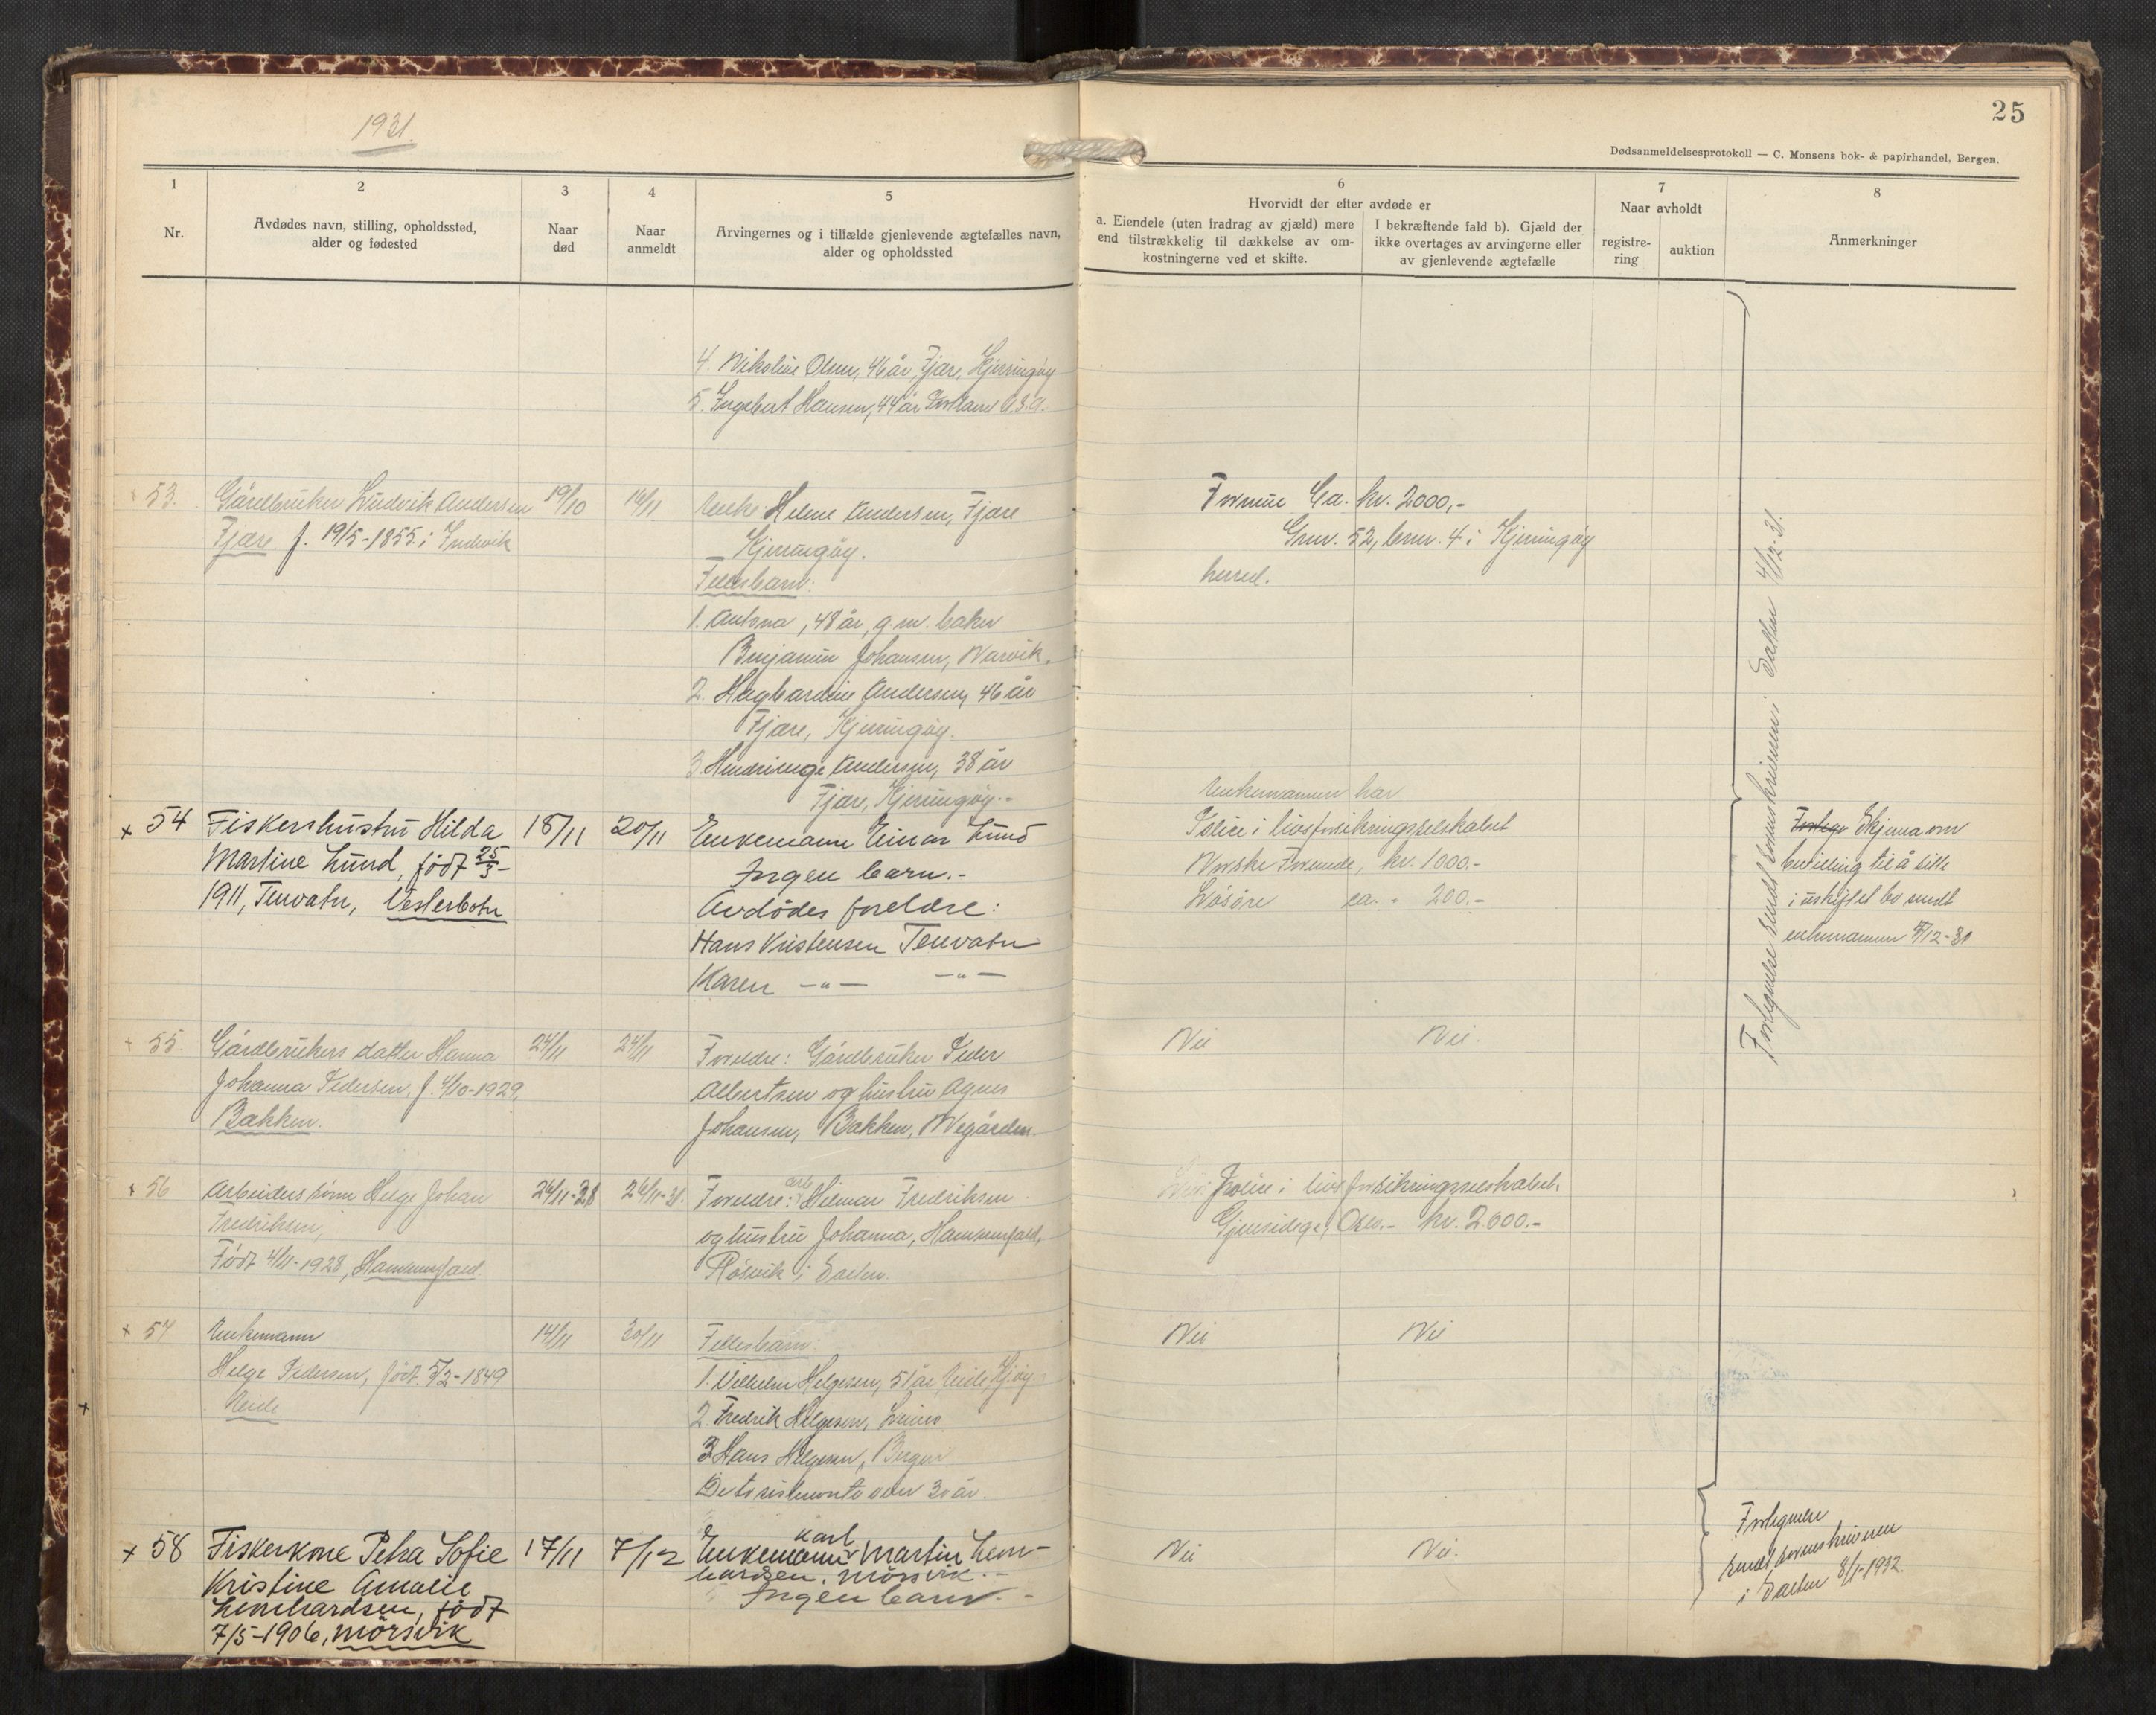 1931.
25
Dødsanmeldelsesprotokoll — C. Monsens bok- & papirhandel, Bergen.
1
Nr.
2
Avdødes navn, stilling, opholdssted,
alder og fødested
3
Naar
død
4
Naar
anmeldt
5
Arvingernes og i tilfælde gjenlevende ægtefælles navn,
alder og opholdssted
6
Hvorvidt der efter avdøde er
a. Eiendele (uten fradrag av gjæld) mere
end tilstrækkelig til dækkelse av om-
kostningerne ved et skifte.
I bekræftende fald b). Gjæld der
ikke overtages av arvingerne eller
av gjenlevende ægtefælle
7
Naar avholdt
registre-
ring
auktion
8
Anmerkninger
4. Nikoline Olsen, 46 år, Fjære, Kjerringøy
5. Ingebert Hansen, 44 år U.S.A.
53.
Gårdbruker Ludvik Andersen
Fjære f. 19/5-1855 i
19/10
14/11
Enke Helene Andersen, Fjære
Kjerringøy.
Fellesbarn:
1. Antona, 48 år, g.m. baker
Benjamin Johansen, Narvik.
2. Hagbardine Andersen, 46 år
Fjære, Kjerringøy.
3. Andersen, 38 år
Fjære, Kjerringøy.-
Formue Ca. kr. 2000,-
Gnr. 52, bnr. 4 i Kjerringøy
herred.
x 54
Fiskerhustru Hilda
Martine Lund, født 25/3-
1911, Tenvatn, Vesterbotn
18/11
20/11
Enkemann Einar Lund
Ingen barn.-
Avdødes foreldre:
Hans Kristensen Tenvatn
Karen -"- -"-
Enkemannen har
Police i livsforsikringsselskabet
Norske Forende, kr. 1000.-
Løsøre ca. " 200.-
Skjema om
bevilling til å sitte
i uskiftet bo sendt
enkemannen 4/12-31
Fortegnelse sendt sorenskriveren i Salten 4/12-31.
x 55.
Gårdbrukers datter Hanna
Johanna Pedersen, f. 4/10-1929,
Bakken.
24/11
24/11
Foreldre: Gårdbruker Peder
Albertsen og hustru Agnes
Johansen, Bakken, Misvær
Nei
Nei.
x 56
Arbeiders sønn Helge Johan
Fredriksen,
Født 4/11-1928,
24/11-28
24/11-31.
Foreldre: arb. Hilmar Fredriksen
og hustru Johanna,
Røsvik i Salten.
Police i livsforsikringsselskabet
Gjensidige, Oslo.- kr. 2600.-
x 57
Enkemann
Helge Pedersen, født 5/2-1849
Neide
14/11
30/11
Fellesbarn
1. Vilhelm Helgesen, 51 år Kj.øy.
2. Fredrik Helgesen,
3 Hans Helgesen, Bergen
De to sistnevnte over 30 år.
Nei
Nei
x 58
Fiskerkone Petra Sofie
Kristine Amalie
Leonhardsen, født
7/5-1906, Mørsvik
17/11
7/12
Enkemann Karl Martin Leon-
hardsen, Mørsvik.-
Ingen barn.-
Nei
Nei.
Fortegnelse
sendt sorenskriveren
i Salten 8/1-1932.